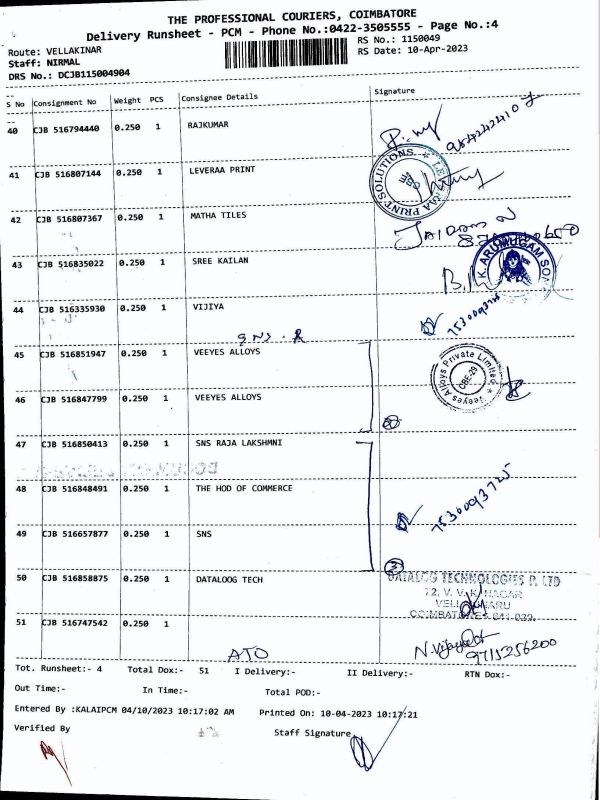 THE PROFESSIONAL COURIERS, COIMBATORE
Delivery Runsheet - PCM - Phone No.:0422-3505555 - Page No.:4
Route: VELLAKINAR
RS No.: 1150049
Staff: NIRMAL
RS Date: 10-Apr-2023
DRS No.: DCJB115004904
S No Consignment No Weight PCS Consignee Details Signature
40 CJB 516794440 0.250 1 RAJKUMAR
41 CJB 516807144 0.250 1 LEVERAA PRINT
LEVERAA PRINT SOLUTIONS
42 CJB 516807367 0.250 1 MATHA TILES
43 CJB 516835022 0.250 1 SREE KAILAN
K. ARUMUGAM SON
44 CJB 516335930 0.250 1 VIJIYA
7530093725
45 CJB 516851947 0.250 1 VEEYES ALLOYS
Veeyes Alloys Private Limited
CBE-29
46 CJB 516847799 0.250 1 VEEYES ALLOYS
47 CJB 516850413 0.250 1 SNS RAJA LAKSHMNI
48 CJB 516848491 0.250 1 THE HOD OF COMMERCE
7530093725
49 CJB 516657877 0.250 1 SNS
3
50 CJB 516858875 0.250 1 DATALOOG TECH
DATALOG TECHNOLOGIES P. LTD
72, V. V. K. NAGAR
51 CJB 516747542 0.250 1
ATO
9715256200
Tot. Runsheet:- 4 Total Dox:- 51 I Delivery:- II Delivery:- RTN Dox:-
Out Time:- In Time:- Total POD:-
Entered By :KALAIPCM 04/10/2023 10:17:02 AM Printed On: 10-04-2023 10:17:21
Verified By Staff Signature